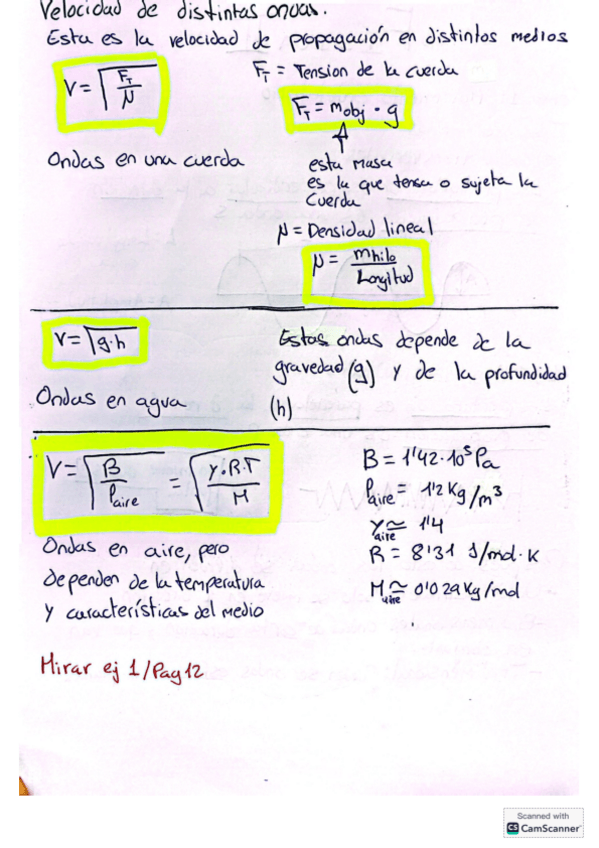 Velocidad de distintas ondas.
Esta es la velocidad de propagación en distintos medios
V = √(F_T/μ)
F_T = Tension de la cuerda
F_T = m_obj · g
Ondas en una cuerda
esta masa
es la que tensa o sujeta la
cuerda
μ = Densidad lineal
μ = m_hilo/Longitud
V = √(g·h)
Estas ondas depende de la
gravedad (g) y de la profundidad
(h)
Ondas en agua
V = √(B/ρ_aire) = √(γ·R·T/M)
B = 1'42·10⁵ Pa
ρ_aire = 1'2 Kg/m³
γ_aire ≃ 1'4
R = 8'31 J/mol·K
M_aire ≃ 0'029 Kg/mol
Ondas en aire, pero
dependen de la temperatura
y características del medio
Mirar ej 1/Pag 12
Scanned with
CS CamScanner